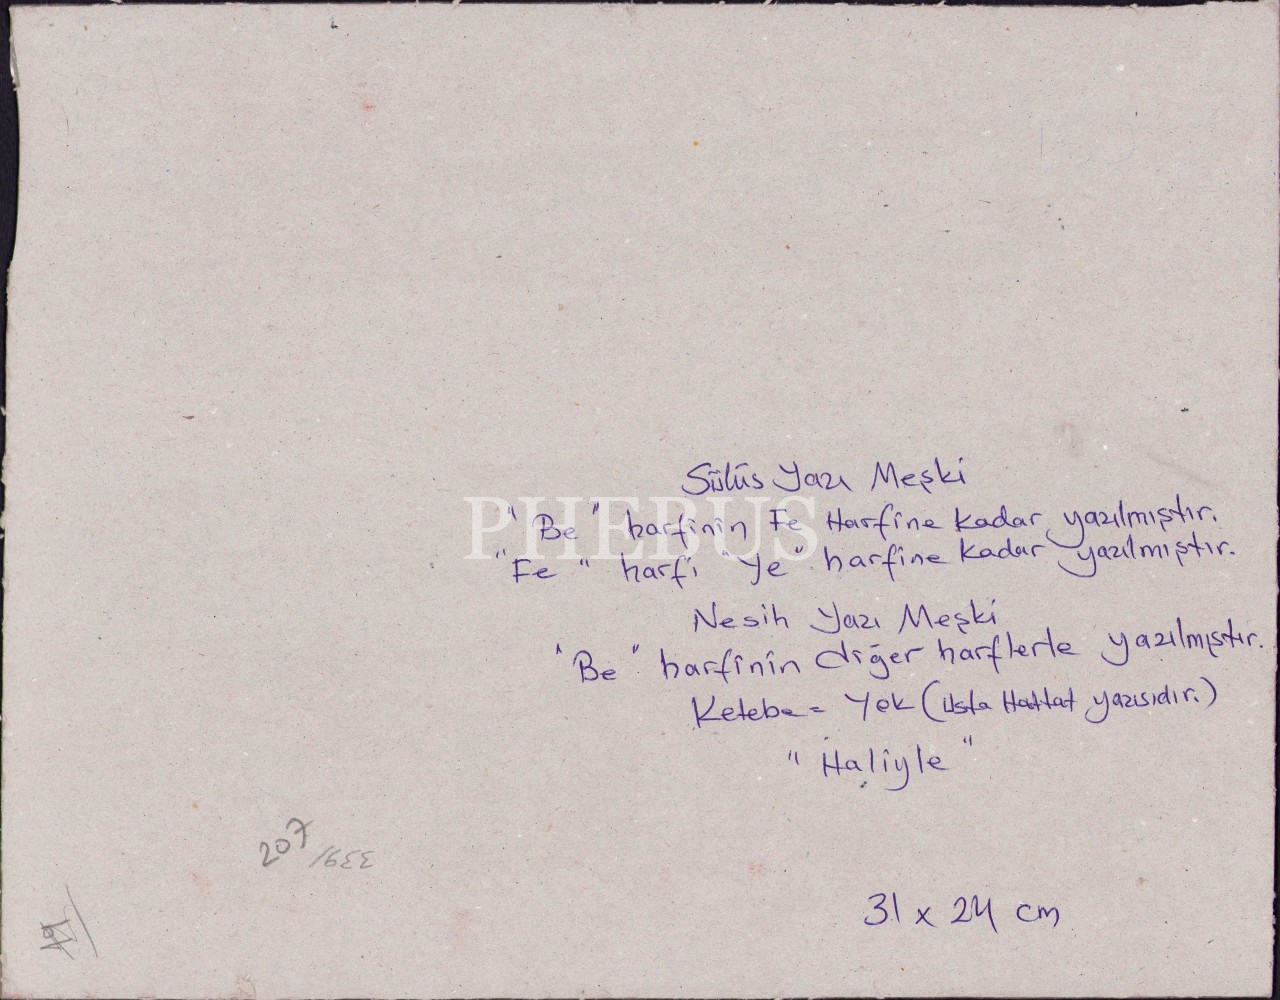 Sülüs Yazı Meşki
"Be" harfinin Fe Harfine kadar yazılmıştır.
"Fe" harfi "Ye" harfine kadar yazılmıştır.
PHEBUS
Nesih Yazı Meşki
"Be" harfinin diğer harflerle yazılmıştır.
Ketebe = Yek (Usta Hattat yazısıdır.)
"Haliyle"
207
31 x 24 cm